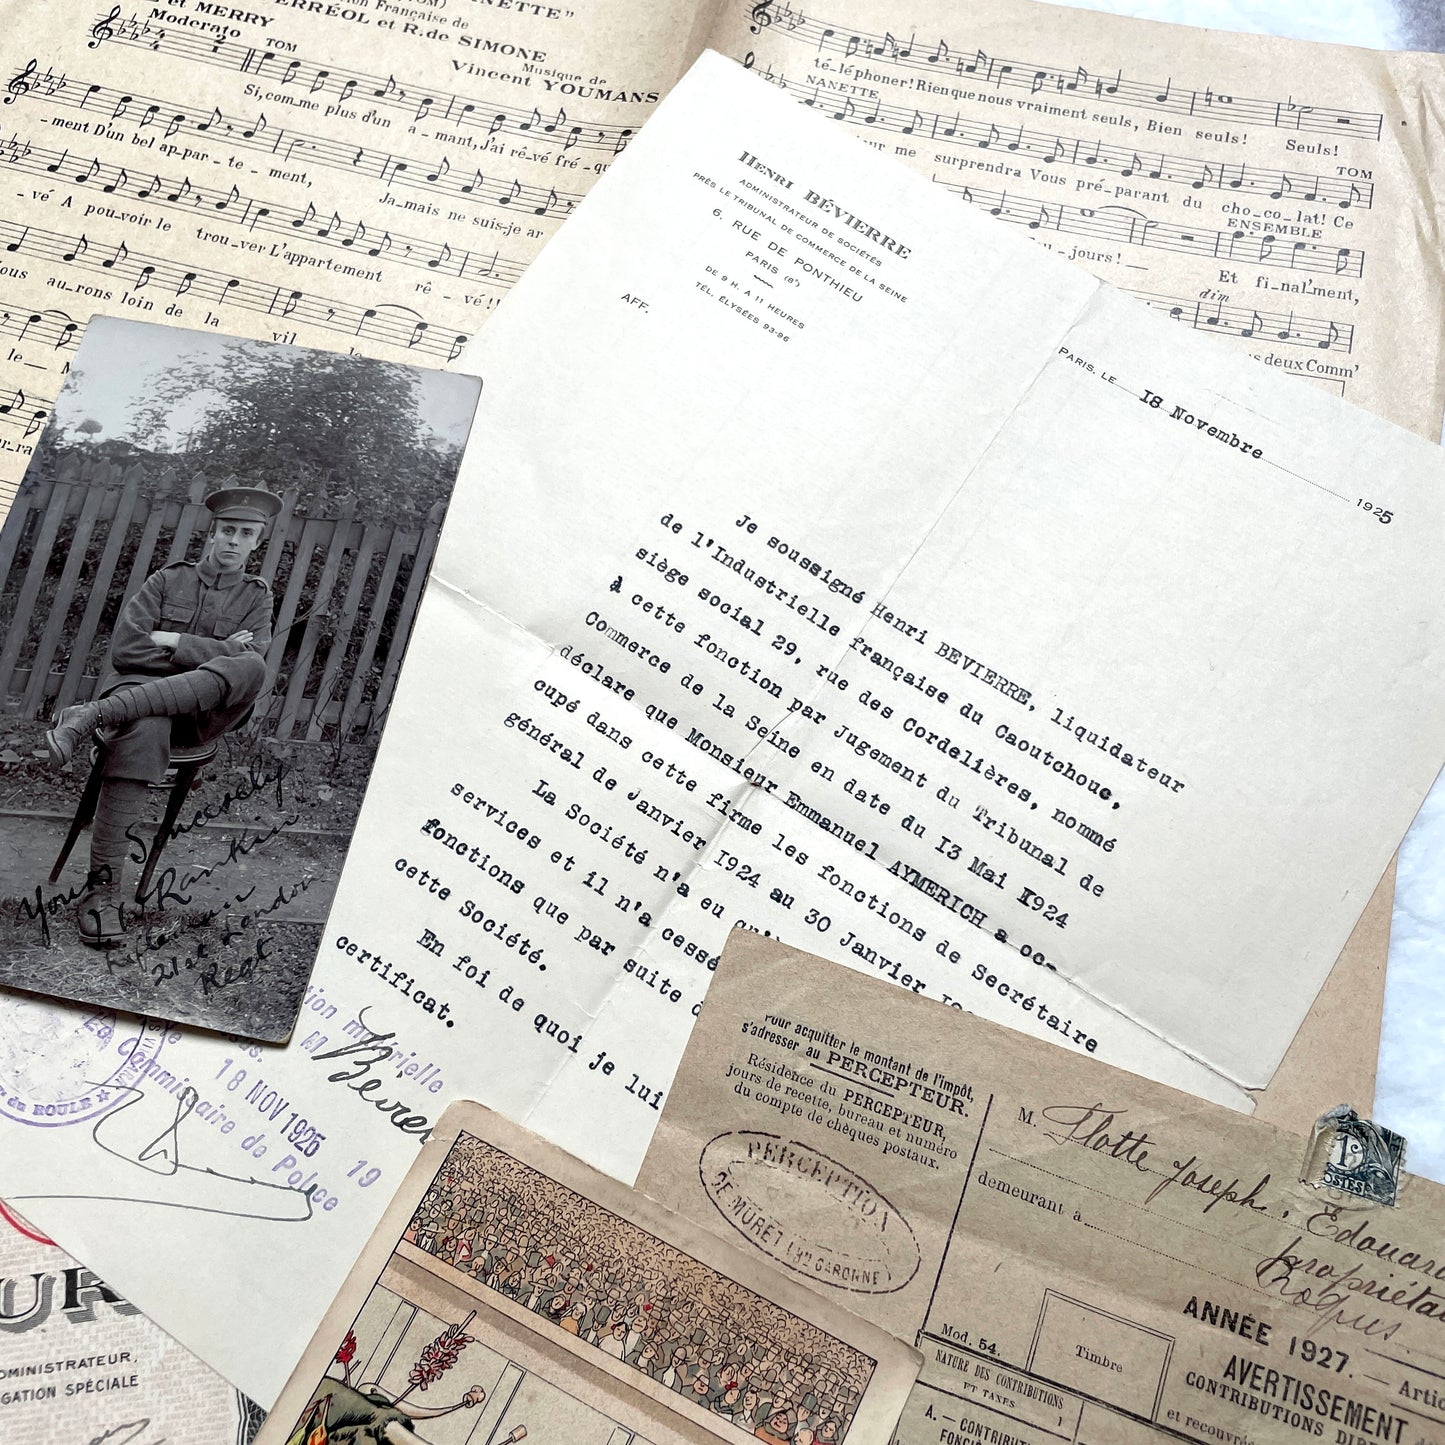 NANETTE"
Française de
et MERRY
ERRÉOL et R. de SIMONE
Musique de
Vincent YOUMANS
Moderato
2
TOM
Si, com-me plus d'un a-mant, J'ai rê-vé fré-qu
-ment D'un bel ap-par-te-ment, Ja-mais ne suis-je ar
-vé A pou-voir le trou-ver L'appartement rê-vé!!
ous au-rons loin de la vil
le— M
té-lé phoner! Rien que nous vraiment seuls, Bien seuls! Seuls!
NANETTE
TOM
ur me surprendra Vous pré-parant du cho-co-lat! Ce
ENSEMBLE
-jours!— Et fi-nal'ment,
dim
us deux Comm'
HENRI BÉVIERRE
ADMINISTRATEUR DE SOCIÉTÉS
PRÈS LE TRIBUNAL DE COMMERCE DE LA SEINE
6, RUE DE PONTHIEU
PARIS (8e)
DE 9 H. A 11 HEURES
TÉL. ÉLYSÉES 93-96
AFF.
PARIS, LE 18 Novembre 1925
Je soussigné Henri BEVIERRE, liquidateur
de l'Industrielle française du Caoutchouc,
siège social 29, rue des Cordelières, nommé
à cette fonction par Jugement du Tribunal de
Commerce de la Seine en date du 13 Mai 1924
déclare que Monsieur Emmanuel AYMERICH a oc-
cupé dans cette firme les fonctions de Secrétaire
général de Janvier 1924 au 30 Janvier
La Société n'a eu qu'
services et il n'a cessé
fonctions que par suite d
cette Société.
En foi de quoi je lui
certificat.
Yours Sincerely
Rankin
Rifleman
21st London
Regt.
tion matérielle
M Bévierre
18 NOV 1925 19
Commissaire de Police
du ROULE
Pour acquitter le montant de l'impôt,
s'adresser au PERCEPTEUR.
Résidence du PERCEPTEUR,
jours de recette, bureau et numéro
du compte de chèques postaux.
PERCEPTION
DE MURET (Hte GARONNE)
M. Flotte Joseph, Édouard
demeurant à
propriéta
1c
POSTES
Mod. 54.
Timbre
ANNÉE 1927.
Artic
AVERTISSEMENT
CONTRIBUTIONS DI
et recouvré
NATURE DES CONTRIBUTIONS
ET TAXES
1
A. — CONTRIBUT
FONCI
UR
DMINISTRATEUR,
GATION SPÉCIALE